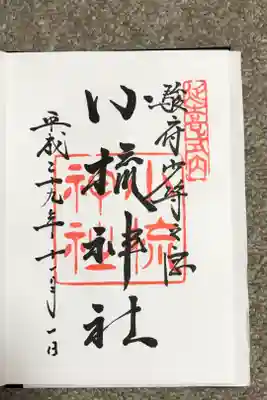 延喜式内
駿府少将之宮
小梳神社
小梳神社
平成二十九年十二月一日